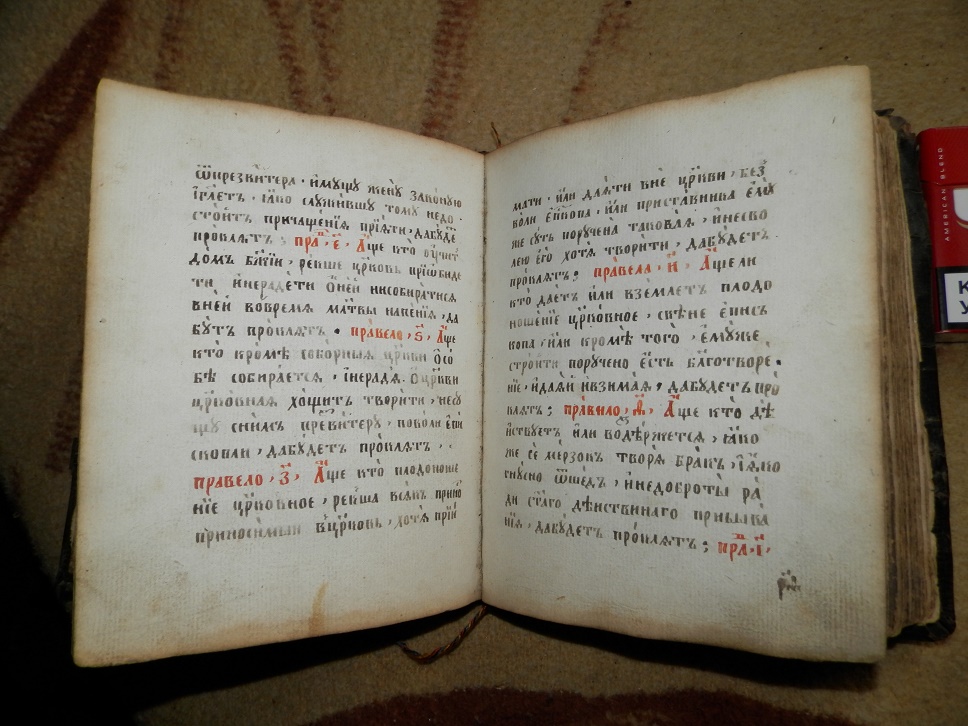 ѿпрезвитера · и҆мꙋщꙋ женꙋ законꙋю
і҆гл҃етъ · ꙗ҆ко слꙋжившꙋ томꙋ недо
стоитъ причащенїѧ прїѧти · дабꙋде
проклѧтъ ; пра҇ · є҃ · А҆ще кто ѹ҆чит
домъ бж҃їи , рекше цр҃ковь прїѡбиде
ти и҆нерадети ѻ҆ней нисобиратисѧ
вней вовремѧ мл҃твы напенїѧ , да
бꙋтъ проклѧтъ · правело , ѕ҃ , А҆ще
кто кромѣ соборныѧ цр҃кви ѻ҆со
бѣ собираетсѧ , і҆нерадѧ · ѻ҆цр҃кви
цр҃ковнаѧ хощитъ творити , несꙋ
щꙋ снимъ превитерꙋ , поволи є҆пи
скопли , дабꙋдет проклѧтъ · ·
правело , з҃ , А҆ще кто плодоноше
нїе цр҃ковное , рекша всѧкъ прино
приносимыи вцр҃ковь , хотѧ прїи
мати · и҆ли даѧти вне цр҃кви , без
воли є҆п҃копа · и҆ли приставника є҆мꙋ
же сꙋть порꙋчена таковаѧ , и҆несво
лею его хотѧ творити , дабꙋдетъ
проклѧтъ ; правела · и҃ · А҆ще ли
кто даетъ и҆ли вземлетъ плодо
ношенїе цр҃ковное , свѣне є҆пись
копа · и҆ли кромѣ того , є҆мꙋже
строити порꙋчено є҆сть бл҃готворе
нїе , и҆даѧй и҆взимаѧ , дабꙋдетъ про
клѧтъ ; правило , ѳ҃ , А҆ще кто дѣ
иствꙋетъ и҆ли водержетсѧ , ꙗ҆ко
же се мерзокъ творѧ бракъ , і҆ꙗко
гнꙋсно ѿшедъ , и҆недоброты ра
ди ст҃аго дѣиствинаго пребыва
нїѧ , дабꙋдетъ проклѧтъ ; пра҇ · і҃ ·
AMERICAN BLEND